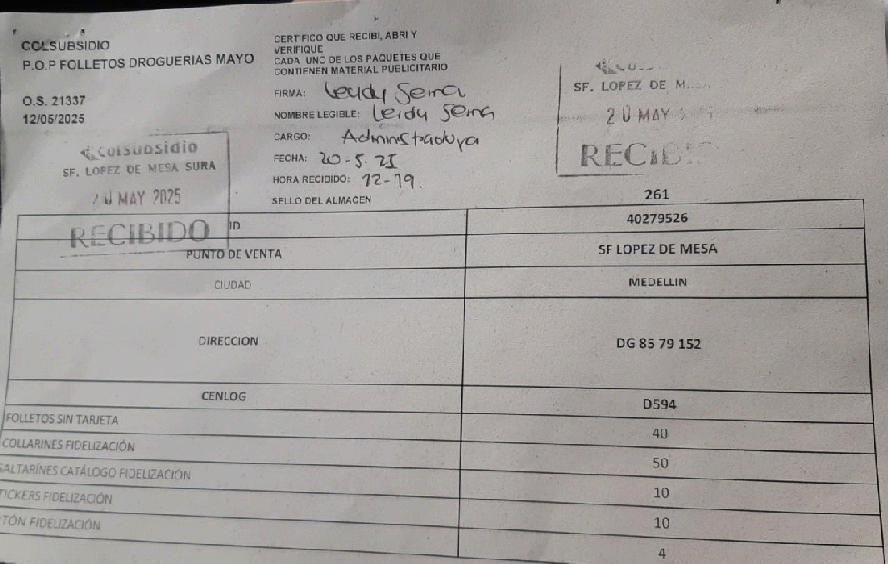 COLSUBSIDIO
P.O.P FOLLETOS DROGUERIAS MAYO
O.S. 21337
12/05/2025
CERTIFICO QUE RECIBI, ABRI Y
VERIFIQUE
CADA UNO DE LOS PAQUETES QUE
CONTIENEN MATERIAL PUBLICITARIO
FIRMA: Leidy Serna
NOMBRE LEGIBLE: Leidy Serna
CARGO: Administradora
FECHA: 20-5-25
HORA RECIBIDO: 12-19.
SELLO DEL ALMACEN
Colsubsidio
SF. LOPEZ DE MESA SURA
20 MAY 2025
RECIBIDO
SF. LOPEZ DE M
20 MAY
RECIBID
261
ID 40279526
PUNTO DE VENTA SF LOPEZ DE MESA
CIUDAD MEDELLIN
DIRECCION DG 85 79 152
CENLOG D594
FOLLETOS SIN TARJETA 40
COLLARINES FIDELIZACIÓN 50
SALTARÍNES CATÁLOGO FIDELIZACIÓN 10
TICKERS FIDELIZACIÓN 10
TÓN FIDELIZACIÓN 4